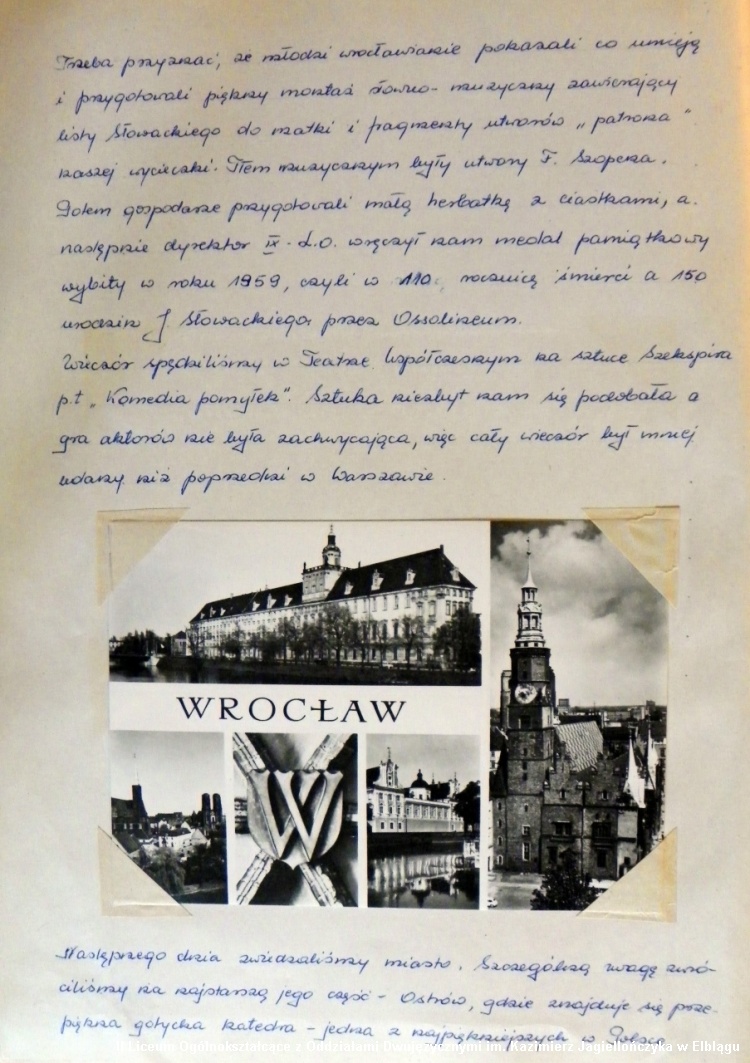 Trzeba przyznać, że młodzi wrocławianie pokazali co umieją
i przygotowali piękny montaż słowno-muzyczny zawierający
listy Słowackiego do matki i fragmenty utworów „patrona”
naszej wycieczki. Tłem muzycznym były utwory F. Szopena.
Potem gospodarze przygotowali małą herbatkę z ciastkami, a
następnie dyrektor IX-L.O. wręczył nam medal pamiątkowy
wybity w roku 1959, czyli w 110 rocznicę śmierci a 150
urodzin J. Słowackiego przez Ossolineum.
Wieczór spędziliśmy w Teatrze Współczesnym na sztuce Szekspira
p.t „Komedia pomyłek”. Sztuka niezbyt nam się podobała a
gra aktorów nie była zachwycająca, więc cały wieczór był mniej
udany niż poprzedni w Warszawie.
WROCŁAW
W
Następnego dnia zwiedzaliśmy miasto. Szczególną uwagę zwró-
ciliśmy na najstarszą jego część - Ostrów, gdzie znajduje się prze-
piękna gotycka katedra - jedna z najpiękniejszych w Polsce
II Liceum Ogólnokształcące z Oddziałami Dwujęzycznymi im. Kazimierza Jagiellończyka w Elblągu